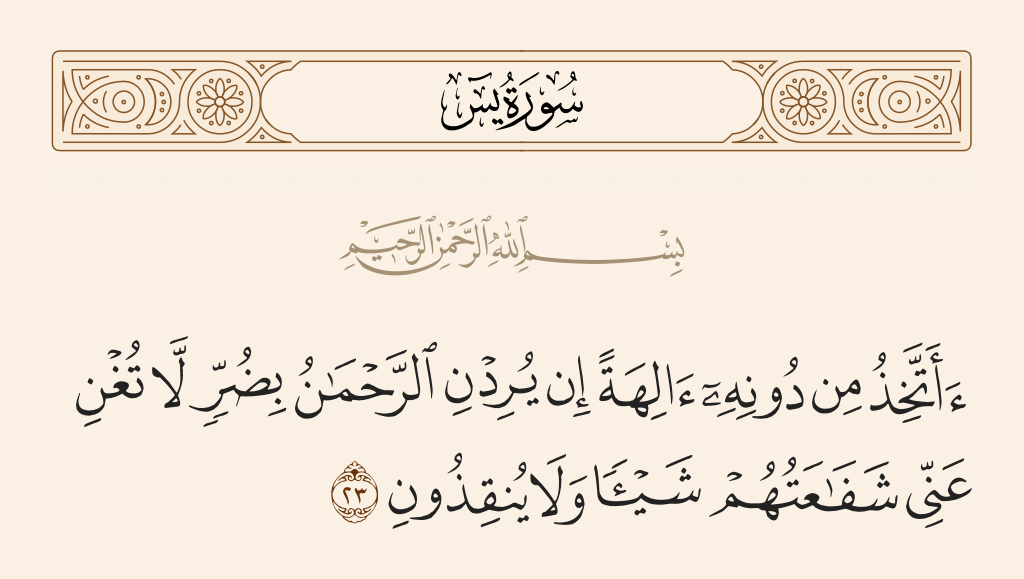 سُورَةُ يسٓ
بِسْمِ ٱللَّهِ ٱلرَّحْمَٰنِ ٱلرَّحِيمِ
ءَأَتَّخِذُ مِن دُونِهِۦٓ ءَالِهَةً إِن يُرِدْنِ ٱلرَّحْمَـٰنُ بِضُرٍّ لَّا تُغْنِ
عَنِّى شَفَـٰعَتُهُمْ شَيْـًٔا وَلَا يُنقِذُونِ ٢٣